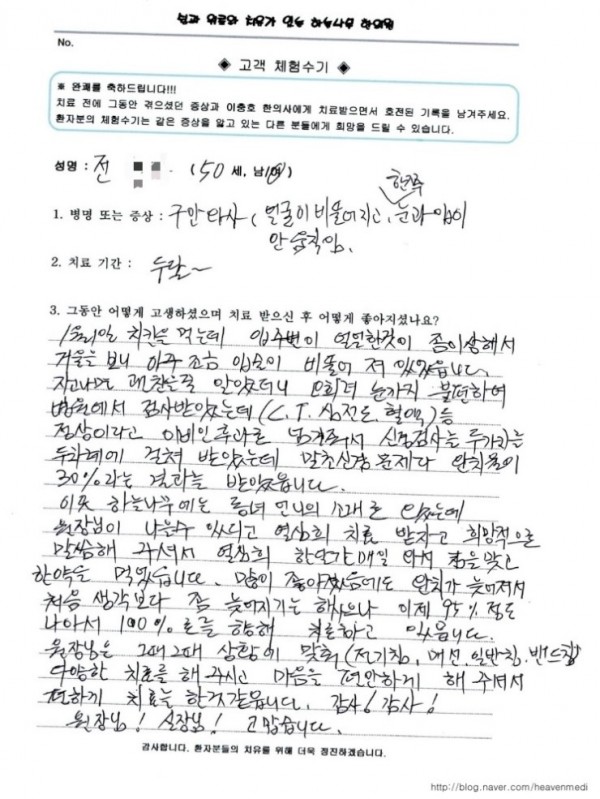 No.
◈ 고객 체험수기 ◈
※ 완쾌를 축하드립니다!!!
치료 전에 그동안 겪으셨던 증상과 이충호 한의사에게 치료받으면서 호전된 기록을 남겨주세요.
환자분의 체험수기는 같은 증상을 앓고 있는 다른 분들에게 희망을 드릴 수 있습니다.
성명 : 전 (50 세, 남/여)
한쪽
1. 병명 또는 증상 : 구안와사 (얼굴이 비뚤어지고, 눈과 입이
안 움직임.
2. 치료 기간 : 두달~
3. 그동안 어떻게 고생하셨으며 치료 받으신 후 어떻게 좋아지셨나요?
치킨을 먹는데 입주변이 얼얼한것이 좀이상해서
거울을 보니 아주 조금 입술이 비뚤어 져 있었읍니다.
지나니면 괜찮을줄 알았더니 오히려 눈까지 불편하여
병원에서 검사받았는데 (C.T, 심전도, 혈액) 등
정상이라고 이비인후과로 넘겨줘서 신경검사는 두가지는
두차례에 걸쳐 받았는데 말초신경문제다 완치율이
30%라는 결과를 받았읍니다.
이곳 하늘나무에는 동네 언니의 소개로 왔는데
원장님이 나을수 있다고 열심히 치료 받자고 희망적으로
말씀해 주셔서 열심히 한달간 매일 와서 침을 맞고
한약을 먹었습니다. 많이 좋아졌음에도 완치가 늦어져서
처음 생각보다 좀 늦어지기는 하였으나 이제 95% 정도
나아서 100%로를 향해 치료하고 있읍니다.
원장님은 그때그때 상황에 맞춰 (전기침, 매선, 일반침, 밴드침)
다양한 치료를 해 주시고 마음을 편안하게 해 주셔서
편하게 치료를 한것같읍니다. 감사! 감사!
원장님! 실장님! 고맙습니다.
감사합니다. 환자분들의 치유를 위해 더욱 정진하겠습니다.
http://blog.naver.com/heavenmedi